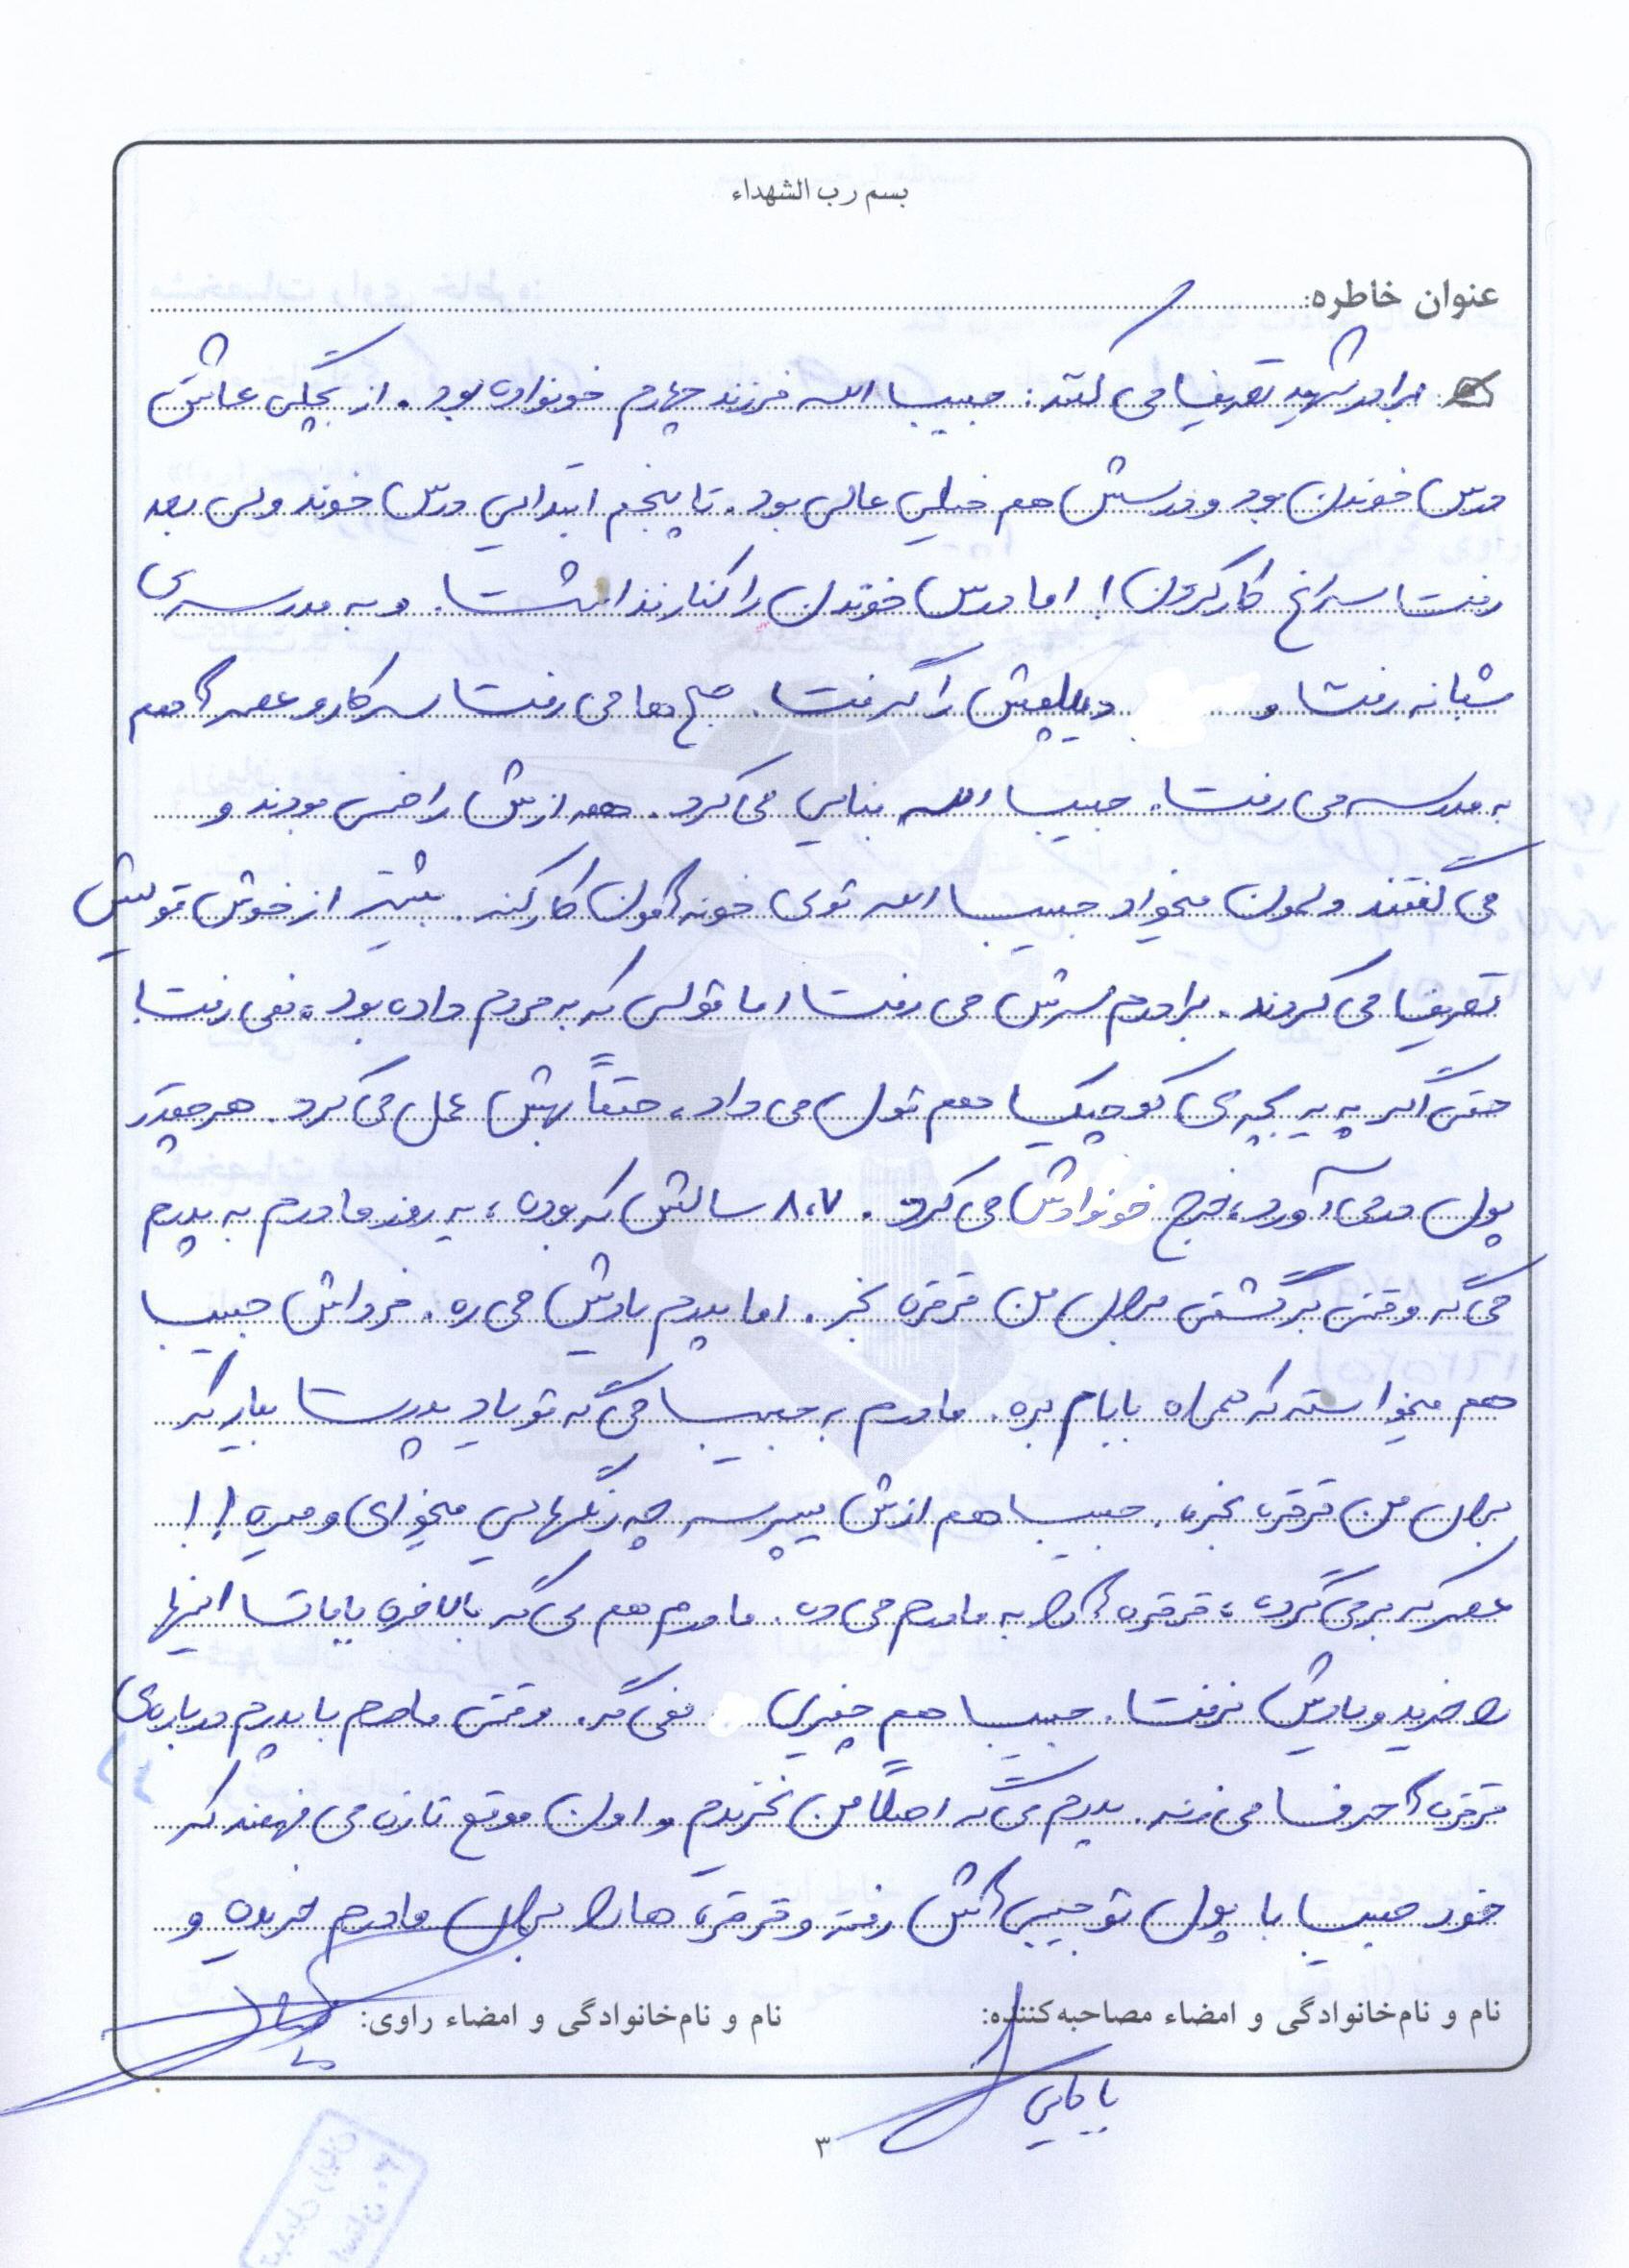 بسم رب الشهداء
عنوان خاطره:
برادر شهید تعریف می گفتند: حبیب الله فرزند چهارم خونواده بود. از بچگی عاشق
درس خوندن بود و درسش هم خیلی عالی بود. تا پنجم ابتدایی درس خوند ولی بعد
رفت سراغ کار کردن! اما درس خوندن را کنار نذاشت. و به مدرسه ی
شبانه رفت و دیپلمش را گرفت. صبح ها می رفت سر کار و عصرها هم
به مدرسه می رفت. حبیب الله بنایی می کرد. همه ازش راضی بودند و
می گفتند دلمون میخواد حبیب الله توی خونه هامون کار کنه. بیشتر از خوش قولیش
تعریف می کردند. برادرم سرش می رفت اما قولی که به مردم داده بود، نمی رفت!
حتی اگر به یه بچه ی کوچیک هم قول می داد، حتماً بهش عمل می کرد. هر چقدر
پول در می آورد، خرج خونوادش می کرد. ۸،۷ سالش که بوده، یه روز مادرم به پدرم
می گه وقتی برگشتی برای من قرقره بخر. اما پدرم یادش می ره. فرداش حبیب
هم میخواسته که همراه بابام بره. مادرم به حبیب می گه تو یاد پدرت بیار که
برای من قرقره بخره. حبیب هم ازش میپرسه چه رنگهایی میخوای و میره!!
عصر که برمی گرده، قرقره ها را به مادرم می ده. مادرم هم می گه بالاخره بابات اینها
را خرید و یادش نرفت. حبیب هم چیزی نمی گه. وقتی مادرم با پدرم درباره ی
قرقره ها حرف می زنه. پدرم می گه اصلاً من نخریدم و اون موقع تازه می فهمند که
خود حبیب با پول توجیبی هاش رفته و قرقره ها را برای مادرم خریده و
نام و نام‌خانوادگی و امضاء مصاحبه‌کننده:
نام و نام‌خانوادگی و امضاء راوی:
بابایی
۳